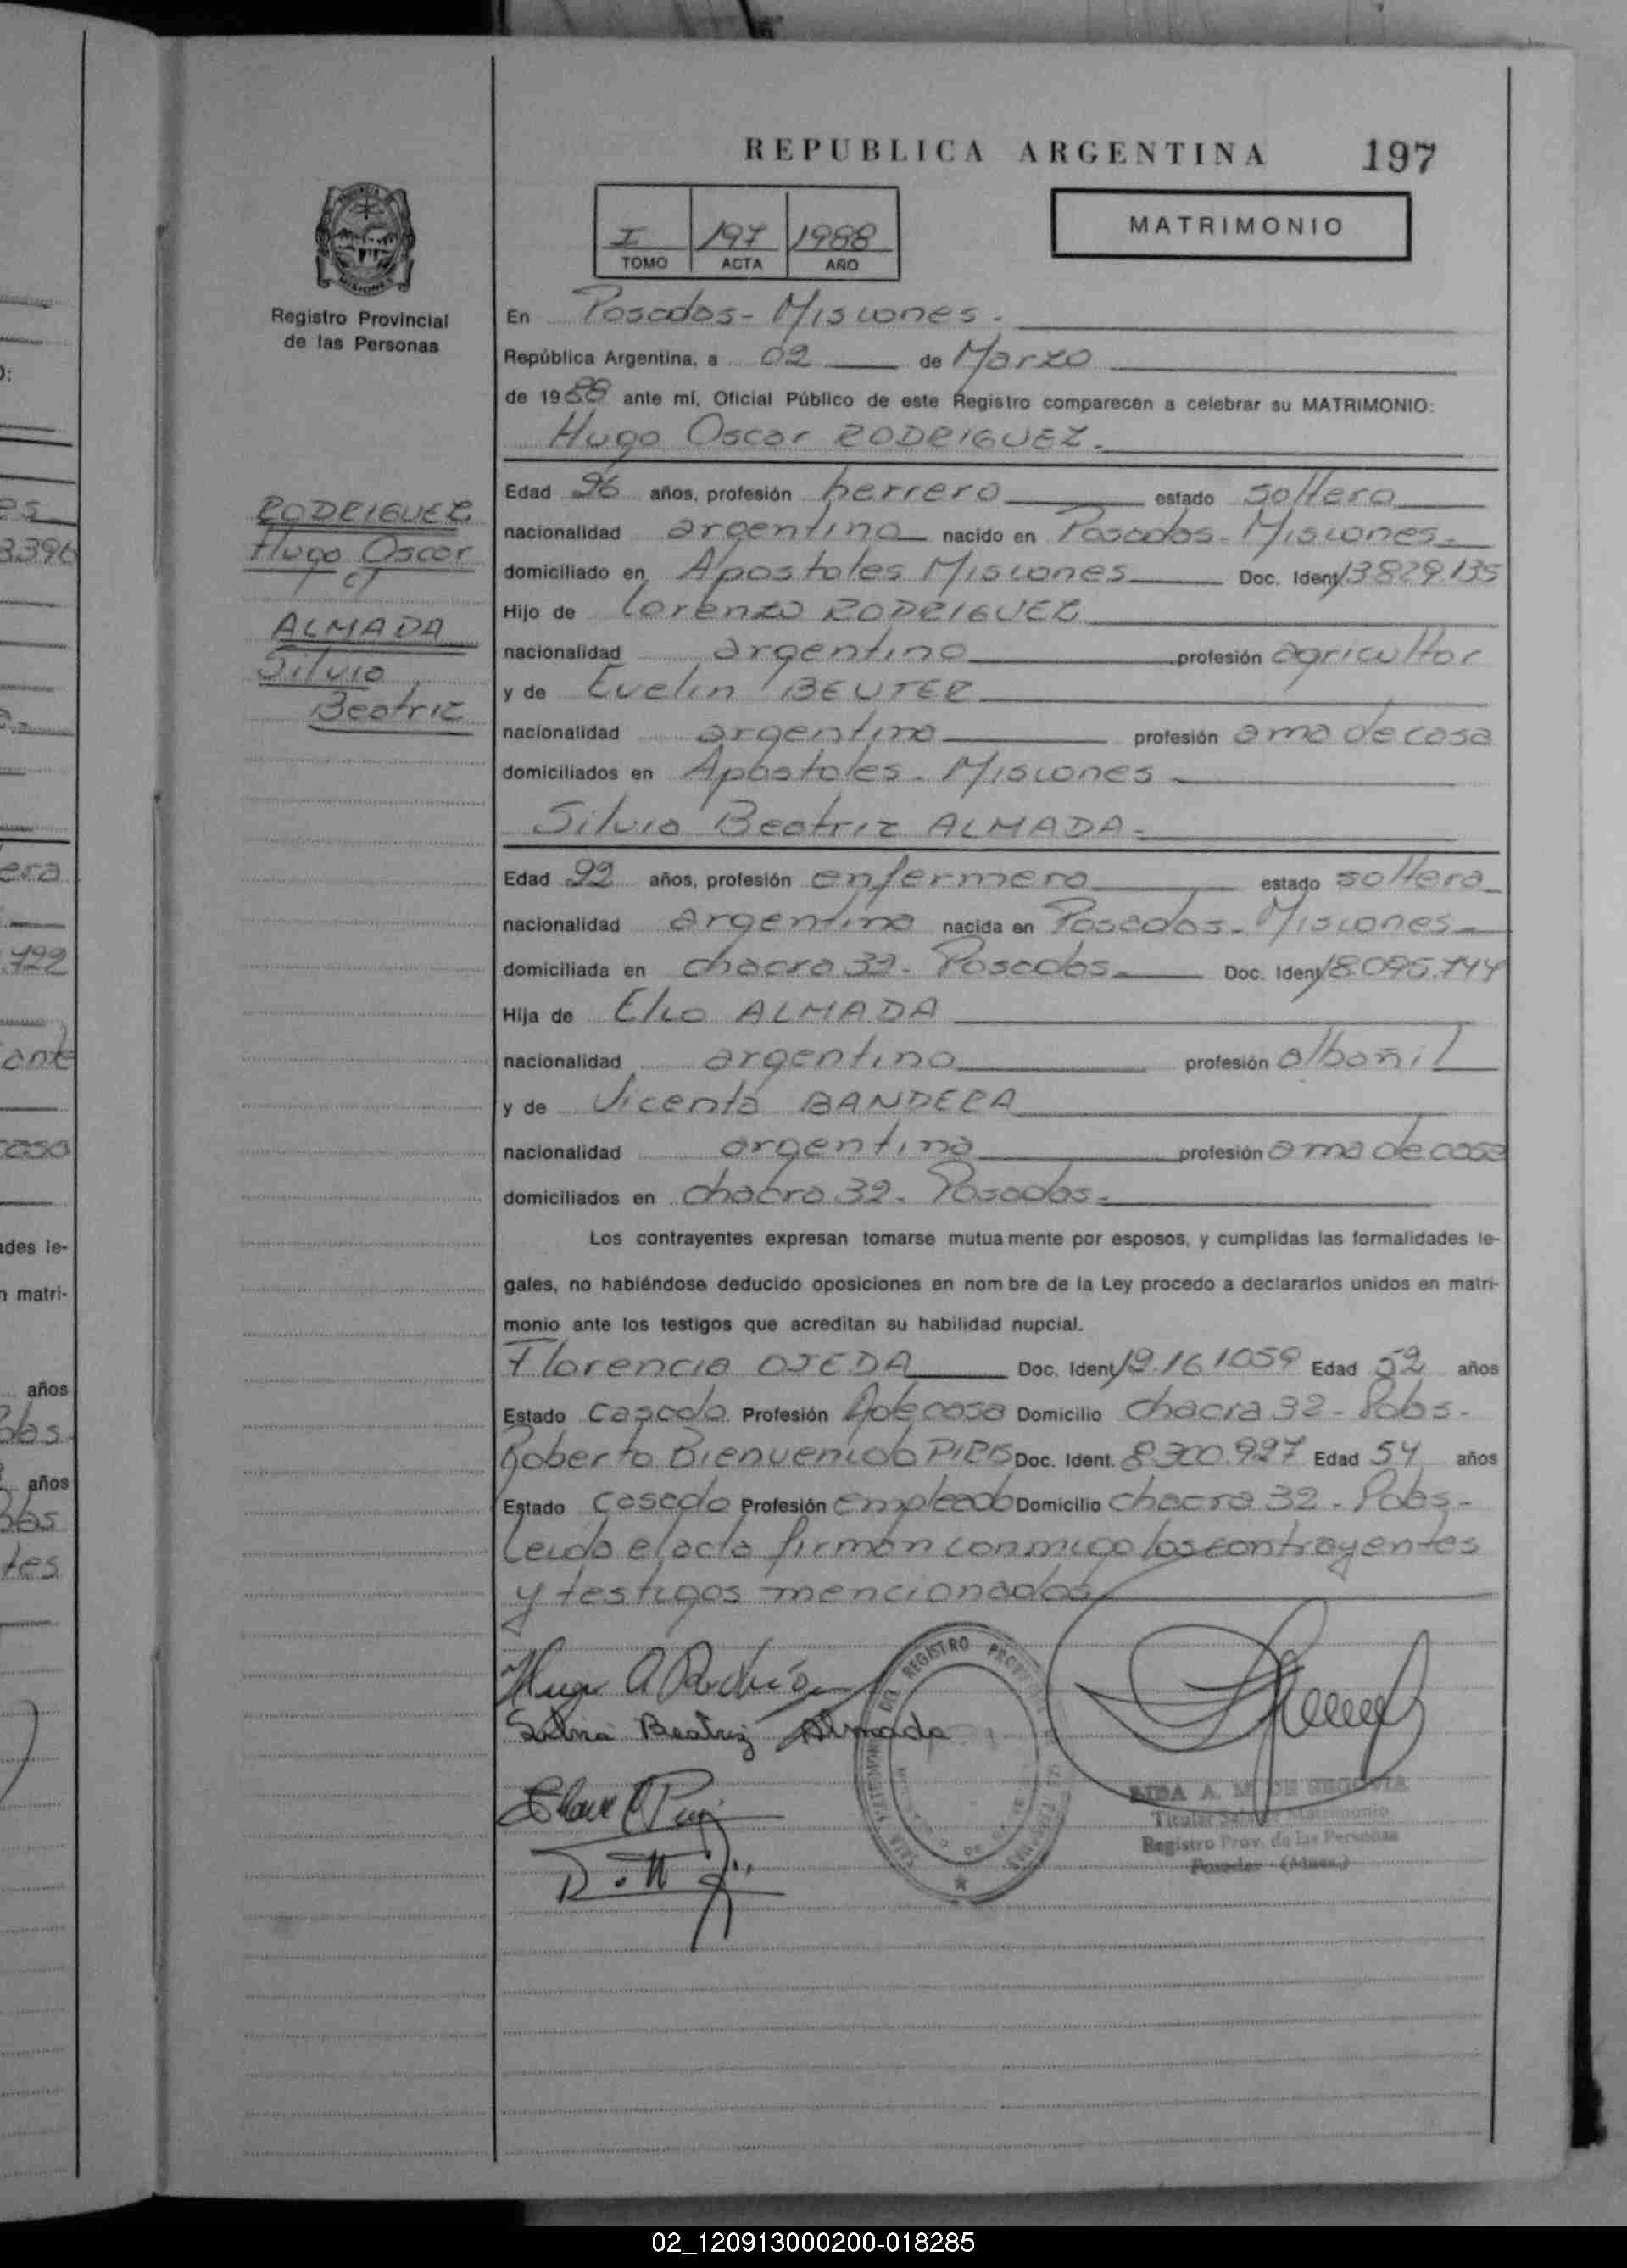 REPUBLICA ARGENTINA 197
MATRIMONIO
I 197 1988
TOMO ACTA AÑO
MISIONES
Registro Provincial
de las Personas
RODRIGUEZ
Hugo Oscar
c/
ALMADA
Silvia
Beatriz
En Posadas - Misiones.
República Argentina, a 02 de Marzo
de 1988 ante mí, Oficial Público de este Registro comparecen a celebrar su MATRIMONIO:
Hugo Oscar RODRIGUEZ.
Edad 26 años, profesión herrero estado soltero
nacionalidad argentina nacido en Posadas - Misiones.
domiciliado en Apostoles Misiones Doc. Ident. 13829.135
Hijo de Lorenzo RODRIGUEZ
nacionalidad argentino profesión agricultor
y de Evelin BEUTER
nacionalidad argentina profesión ama de casa
domiciliados en Apostoles - Misiones
Silvia Beatriz ALMADA.
Edad 22 años, profesión enfermera estado soltera
nacionalidad argentina nacida en Posadas - Misiones
domiciliada en chacra 32 - Posadas. Doc. Ident. 18.095.744
Hija de Elio ALMADA
nacionalidad argentino profesión albañil
y de Vicenta BANDERA
nacionalidad argentina profesión ama de casa
domiciliados en chacra 32 - Posadas.
Los contrayentes expresan tomarse mutuamente por esposos, y cumplidas las formalidades le-
gales, no habiéndose deducido oposiciones en nombre de la Ley procedo a declararlos unidos en matri-
monio ante los testigos que acreditan su habilidad nupcial.
Florencia OJEDA Doc. Ident. 12.161059 Edad 52 años
Estado Casada Profesión A de casa Domicilio chacra 32 - Pdas.
Roberto Bienvenido PIRIS Doc. Ident. 8.300.927 Edad 54 años
Estado casado Profesión empleado Domicilio chacra 32 - Pdas.
Leida el acta firman conmigo los contrayentes
y testigos mencionados
Silvia Beatriz Almada
REGISTRO
A. M. DE SEGOVIA
Titular Sala de Matrimonio
Registro Prov. de las Personas
Posadas - (Mnes.)
3.396
era
ante
ades le-
n matri-
años
años
tes
02_120913000200-018285